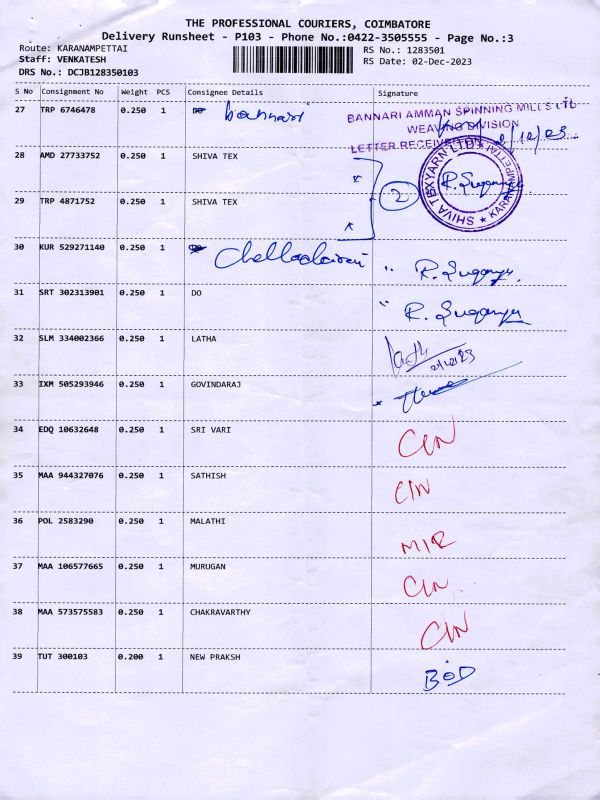 THE PROFESSIONAL COURIERS, COIMBATORE
Delivery Runsheet - P103 - Phone No.:0422-3505555 - Page No.:3
Route: KARANAMPETTAI
RS No.: 1283501
Staff: VENKATESH
RS Date: 02-Dec-2023
DRS No.: DCJB128350103
S No Consignment No Weight PCS Consignee Details Signature
27 TRP 6746478 0.250 1 DO bannari
BANNARI AMMAN SPINNING MILLS LTD
WEAVING DIVISION
LETTER RECEIVED ON 2/12/23
28 AMD 27733752 0.250 1 SHIVA TEX
SHIVA TEXYARN LTD ★ KARANAMPETTAI ★
R. Suganya
2
29 TRP 4871752 0.250 1 SHIVA TEX
30 KUR 529271140 0.250 1 DO " R. Suganya
31 SRT 302313901 0.250 1 DO " R. Suganya
32 SLM 334002366 0.250 1 LATHA 2/12/23
33 IXM 505293946 0.250 1 GOVINDARAJ
34 EDQ 10632648 0.250 1 SRI VARI CIN
35 MAA 944327076 0.250 1 SATHISH CIN
36 POL 2583290 0.250 1 MALATHI MIR
37 MAA 106577665 0.250 1 MURUGAN CIN
38 MAA 573575583 0.250 1 CHAKRAVARTHY CIN
39 TUT 300103 0.200 1 NEW PRAKSH BOD